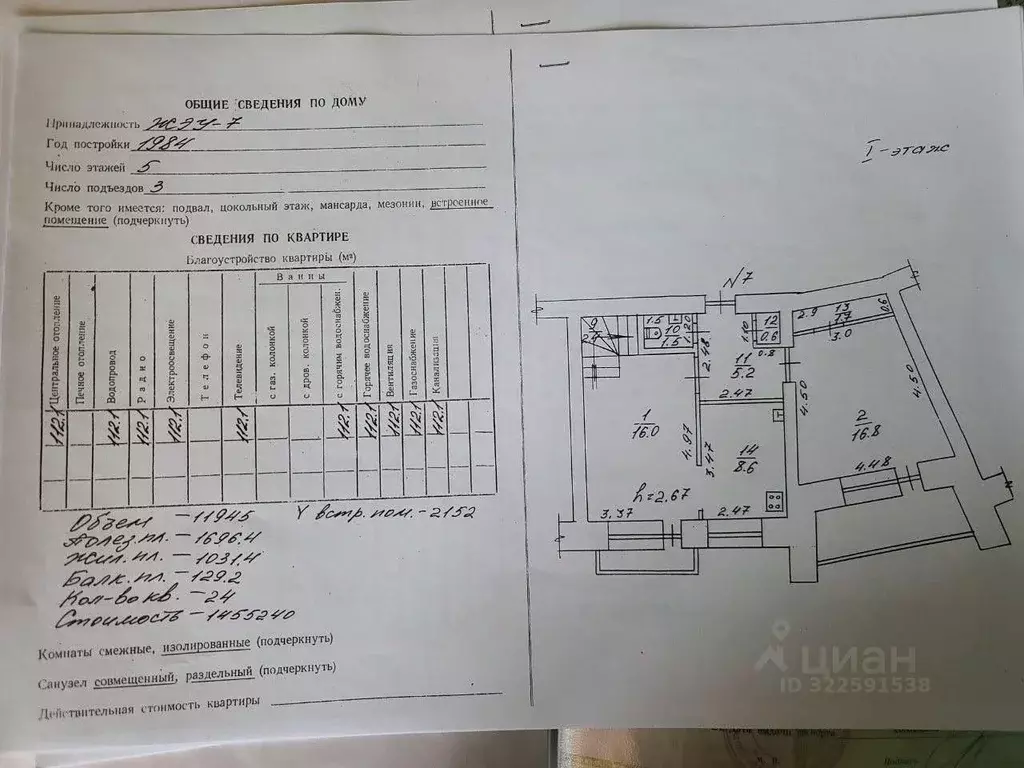 ОБЩИЕ СВЕДЕНИЯ ПО ДОМУ
Принадлежность ЖЭУ-7
Год постройки 1984
Число этажей 5
Число подъездов 3
Кроме того имеется: подвал, цокольный этаж, мансарда, мезонин, встроенное
помещение (подчеркнуть)
СВЕДЕНИЯ ПО КВАРТИРЕ
Благоустройство квартиры (м²)
Ванны
Центральное отопление
Печное отопление
Водопровод
Радио
Электроосвещение
Телефон
Телевидение
с газ. колонкой
с дров. колонкой
с горячим водоснабжен.
Горячее водоснабжение
Вентиляция
Газоснабжение
Канализация
112.1 112.1 112.1 112.1 112.1 112.1 112.1 112.1 112.1 112.1
Объем - 11945 V встр. пом. - 2152
Полез. пл. - 1696.4
Жил. пл. - 1031.4
Балк. пл. - 129.2
Кол-во кв. - 24
Стоимость - 1455240
Комнаты смежные, изолированные (подчеркнуть)
Санузел совмещенный, раздельный (подчеркнуть)
Действительная стоимость квартиры
I - этаж
N7
9
2.4
1.5
10
1.5
1.20
2.48
1.80
12
0.6
0.8
11
5.2
2.47
2.9
13
3.0
0.6
4.50
4.50
2
16.8
4.48
1
16.0
4.97
3.47
14
8.6
h=2.67
3.37
2.47
циан
ID 322591538